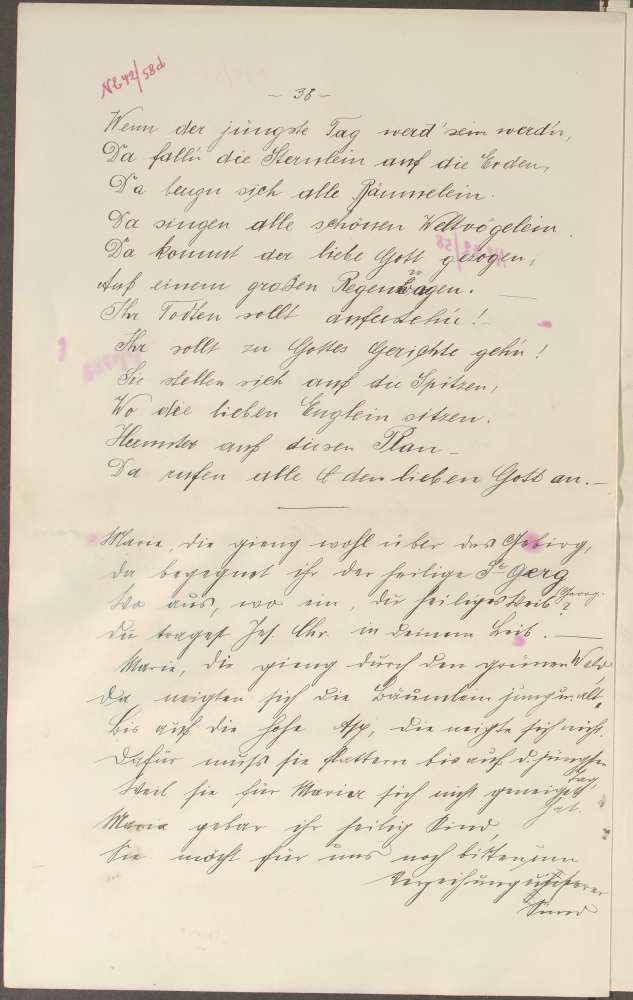 NL 42/58d
- 38 -
Wenn der jüngste Tag werd' sein werd'n,
Da fall'n die Sternlein auf die Erden,
Da beugn sich alle Bäumelein.
Da singen alle schönen Weltvögelein.
Da kommt der liebe Gott gezogen,
Auf einem großen Regenbogen.
Ihr Todten sollt auferstehn! -
Ihr sollt zu Gottes Gerichte gehn!
Sie stellen sich auf die Spitzen,
Wo die lieben Englein sitzen.
Herunter auf diesen Plan -
Da rufen alle den lieben Gott an. -
Maria, die gieng wohl über das Gebirg,
da begegnet ihr der heilige St Gerg
Georg.
Wo aus, wo ein, du heiliges Weib?
du tragest Jes. Chr. in deinem Leib. -
Maria, die gieng durch den grünen Wald,
Da neigten sich die Bäumlein jung u. alt.
Bis auf die hohe Asp, die neigte sich nicht.
Dafür muß sie flattern bis auf d. jüngsten
Tag,
Weil sie für Maria sich nicht geneiget
hat.
Maria gebar ihr heilig Kind,
Sie möcht für uns noch bitten um
Verzeihung unserer
Sünd